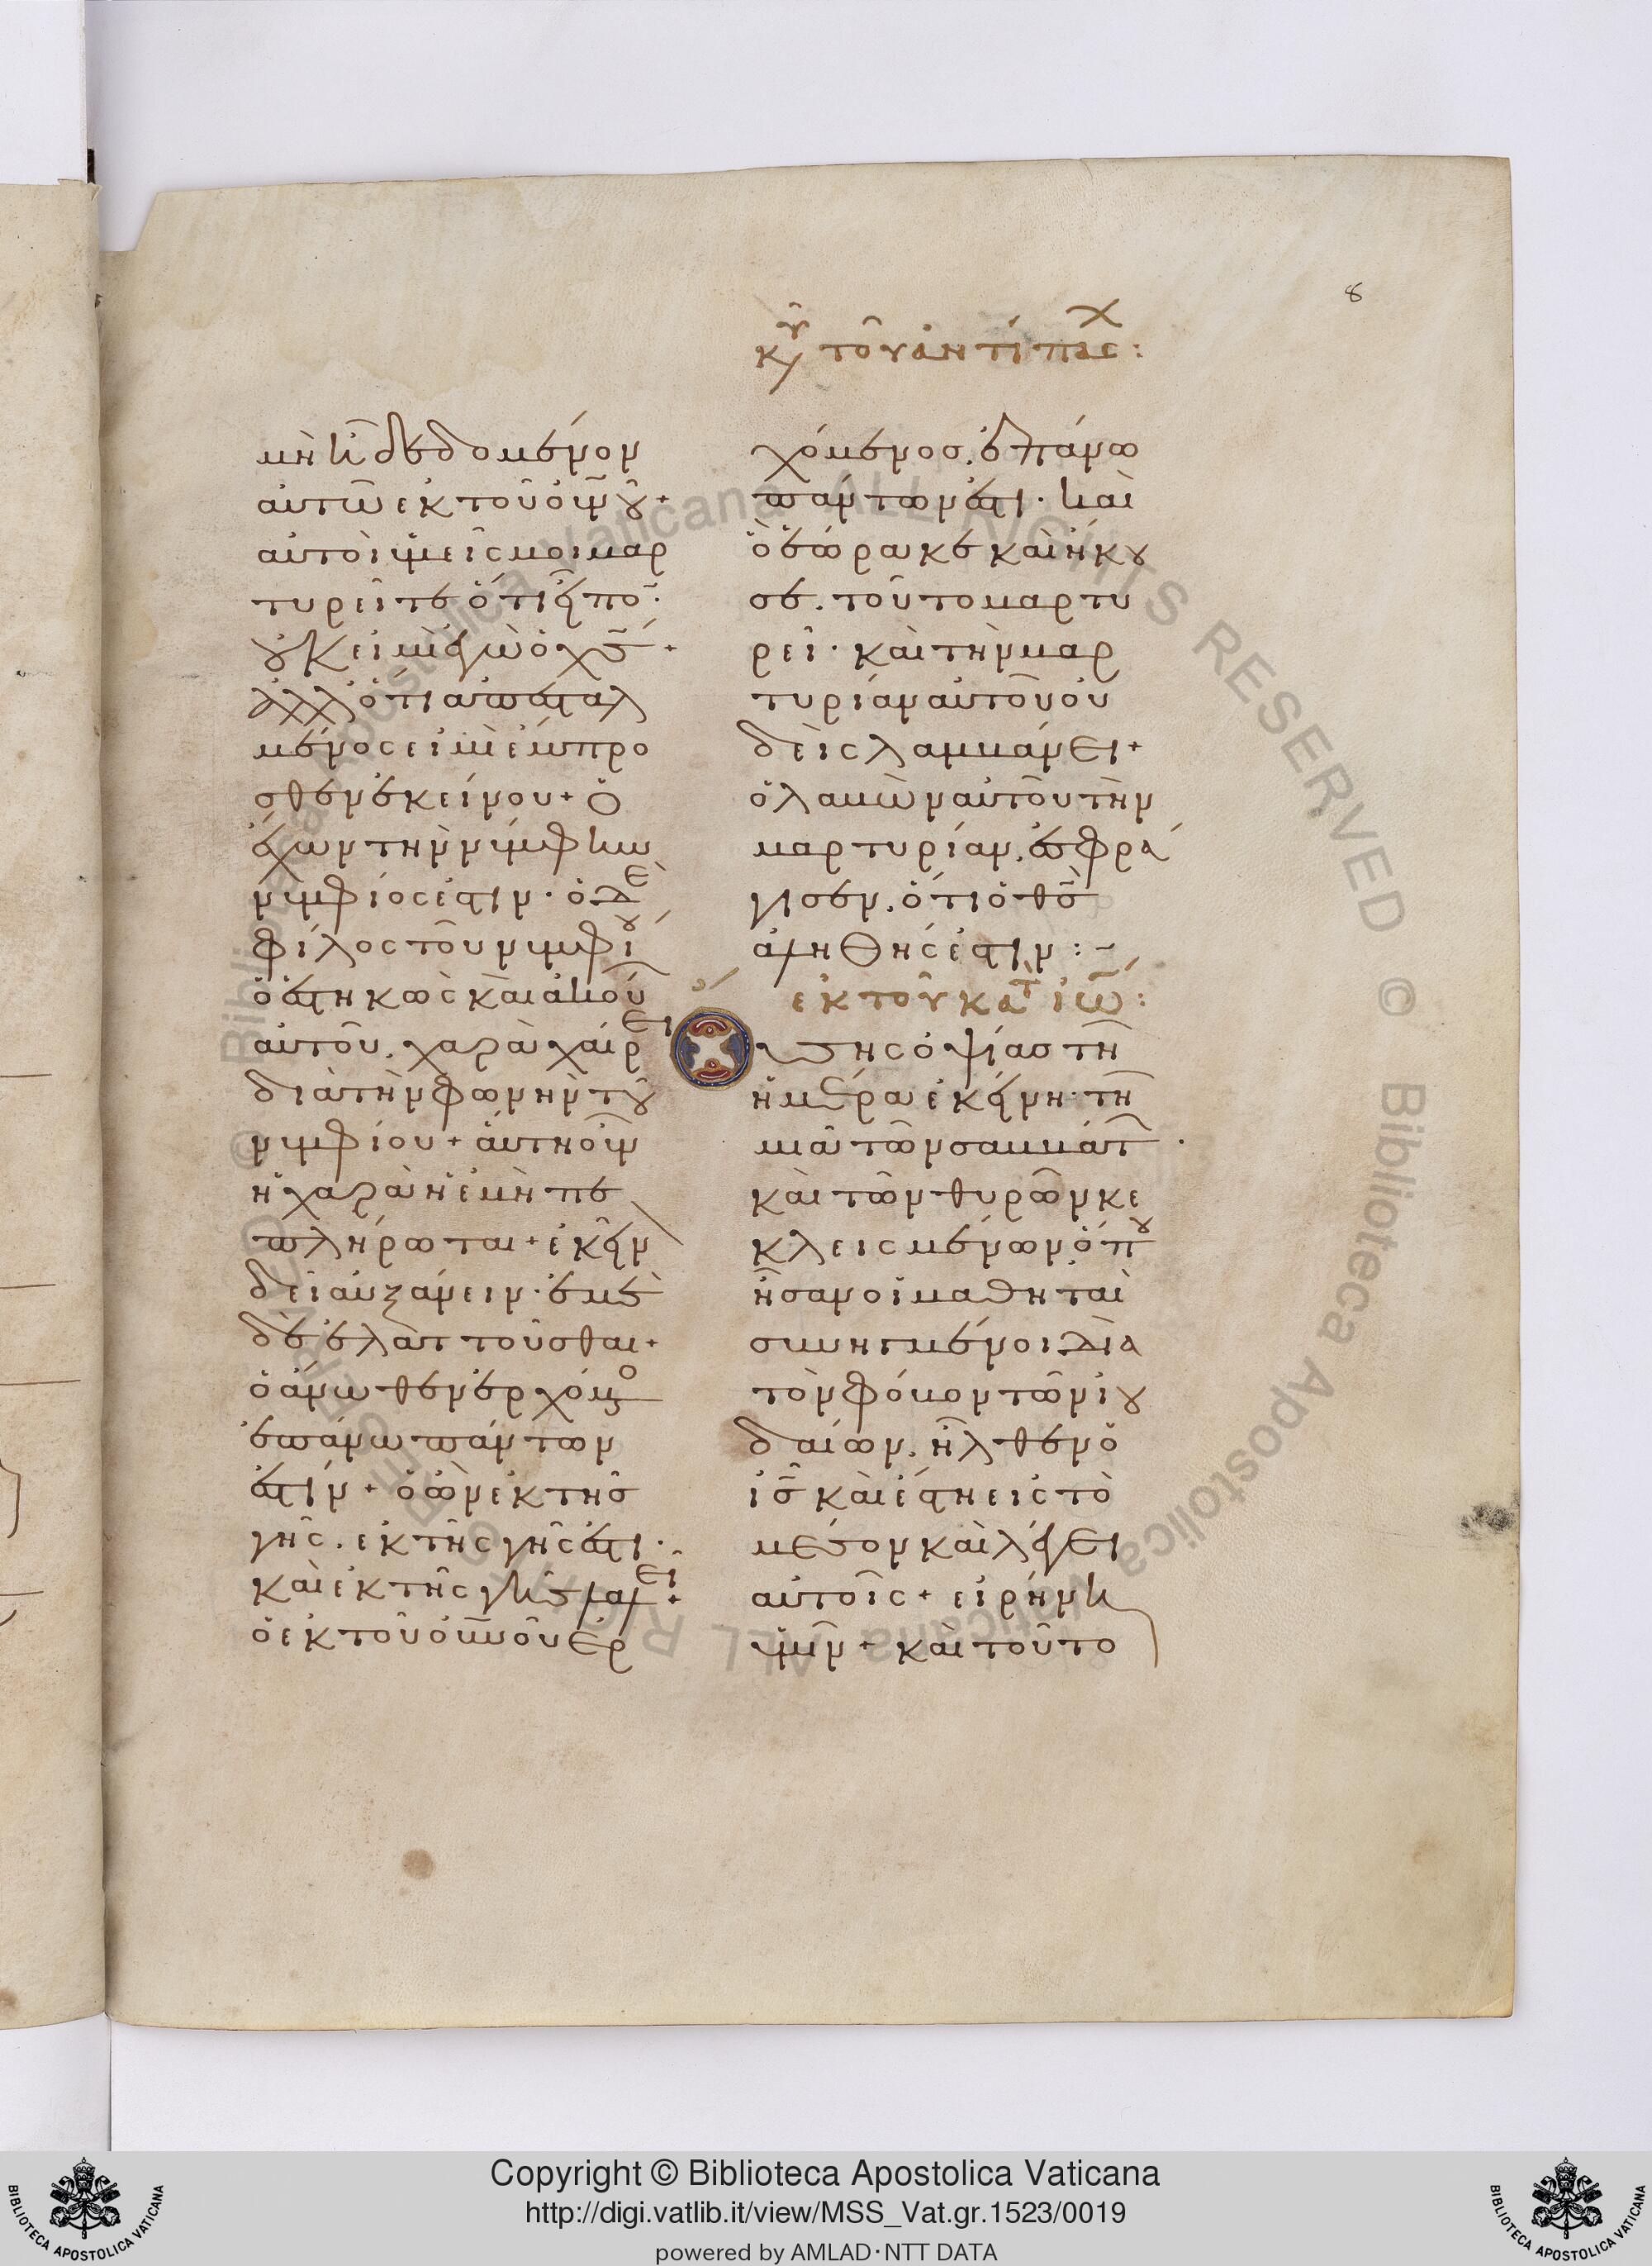 8
κυ τοῦ ἀντίπασχ:
μὴ ἦ δεδομένον
αὐτῶ ἐκ τοῦ οὐνου+
αὐτοὶ ὑμεῖς μοι μαρ
τυρεῖτε ὅτι εἶπον·
οὐκ εἰμὶ ἐγὼ ὁ χς+
ἀλλ ὅτι ἀπεσταλ
μένος εἰμὶ ἔμπρο
σθεν ἐκείνου+ ὁ
ἔχων τὴν νύμφην
νυμφίος ἐστιν· ὁ δὲ
φίλος τοῦ νυμφίου
ὁ ἑστηκὼς καὶ ἀκούων
αὐτοῦ. χαρὰ χαίρει
διὰ τὴν φωνὴν τοῦ
νυμφίου+ αὕτη οὖν
ἡ χαρὰ ἡ ἐμὴ πε
πλήρωται+ ἐκεῖνον
δεῖ αὐξάνειν· ἐμὲ
δὲ ἐλαττοῦσθαι+
ὁ ἄνωθεν ἐρχόμενος
ἐπάνω πάντων
ἐστίν+ ὁ ὢν ἐκ τῆς
γῆς. ἐκ τῆς γῆς ἐστι·
καὶ ἐκ τῆς γῆς λαλεῖ+
ὁ ἐκ τοῦ οὐνοῦ ἐρ
χόμενος. ἐπάνω
πάντων ἐστι· καὶ
ὃ ἑώρακε καὶ ἤκου
σε. τοῦτο μαρτυ
ρεῖ· καὶ τὴν μαρ
τυρίαν αὐτοῦ οὐ
δεὶς λαμβάνει+
ὁ λαβὼν αὐτοῦ τὴν
μαρτυρίαν. ἐσφρά
γισεν. ὅτι ὁ θς
ἀληθής ἐστιν:~
ἐκ τοῦ κατ ἰω:
Οὔσης ὀψίας τῆ
ἡμέρα ἐκείνη· τῆ
μιᾶ τῶν σαββάτ·
καὶ τῶν θυρῶν κε
κλεισμένων, ὅπου
ἦσαν οἱ μαθηταὶ
συνηγμένοι. διὰ
τὸν φόβον τῶν ἰου
δαίων. ἦλθεν ὁ
ις καὶ ἔστη εἰς τὸ
μέσον καὶ λέγει
αὐτοῖς+ εἰρήνη
ὑμῖν+ καὶ τοῦτο
© Biblioteca Apostolica Vaticana ALL RIGHTS RESERVED
Copyright © Biblioteca Apostolica Vaticana
http://digi.vatlib.it/view/MSS_Vat.gr.1523/0019
powered by AMLAD·NTT DATA
BIBLIOTECA APOSTOLICA VATICANA
BIBLIOTECA APOSTOLICA VATICANA